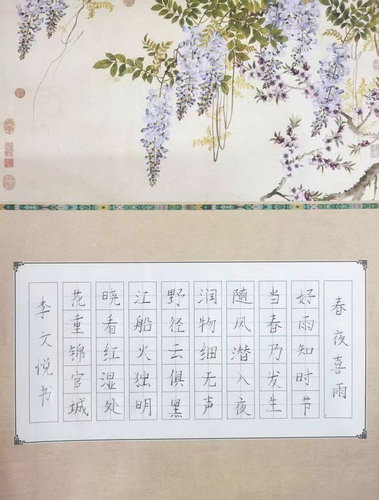 春夜喜雨
好雨知时节
当春乃发生
随风潜入夜
润物细无声
野径云俱黑
江船火独明
晓看红湿处
花重锦官城
李文悦书